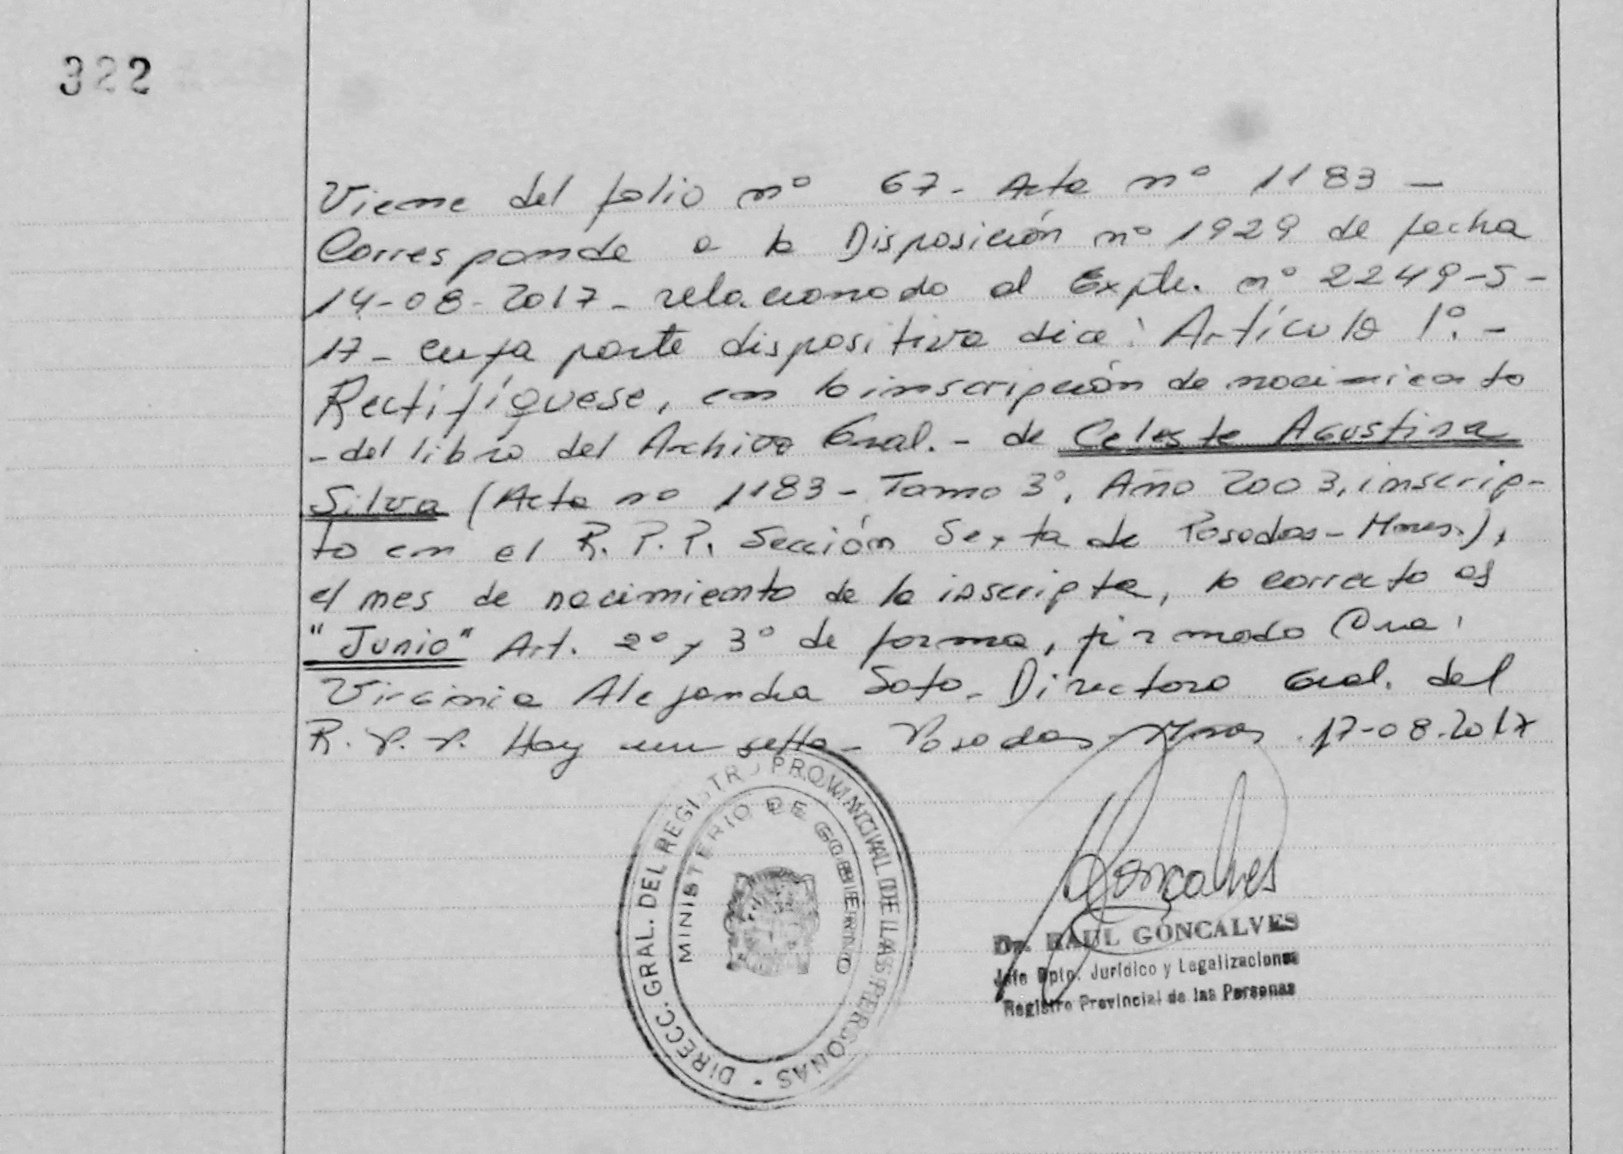 322
Viene del folio nº 67 - Acta nº 1183 -
Corresponde a la Disposición nº 1929 de fecha
14-08-2017 - relacionado al Expte. nº 2249-S-
17 - cuya parte dispositiva dice: Artículo 1º. -
Rectifíquese, en la inscripción de nacimiento
- del libro del Archivo Gral. - de Celeste Agustina
Silva (Acta nº 1183 - Tomo 3º, Año 2003, inscrip-
to en el R. P. P. Sección Sexta de Posadas - Mnes.),
el mes de nacimiento de la inscripta, lo correcto es
"Junio" Art. 2º y 3º de forma, firmado Dra.
Virginia Alejandra Soto - Directora Gral. del
R. P. P. Hay un sello - Posadas Mnes 17-08-2017
DIRECC. GRAL. DEL REGISTRO PROVINCIAL DE LAS PERSONAS
MINISTERIO DE GOBIERNO
Gonçalves
Dr. RAUL GONCALVES
Jefe Dpto. Jurídico y Legalizaciones
Registro Provincial de las Personas